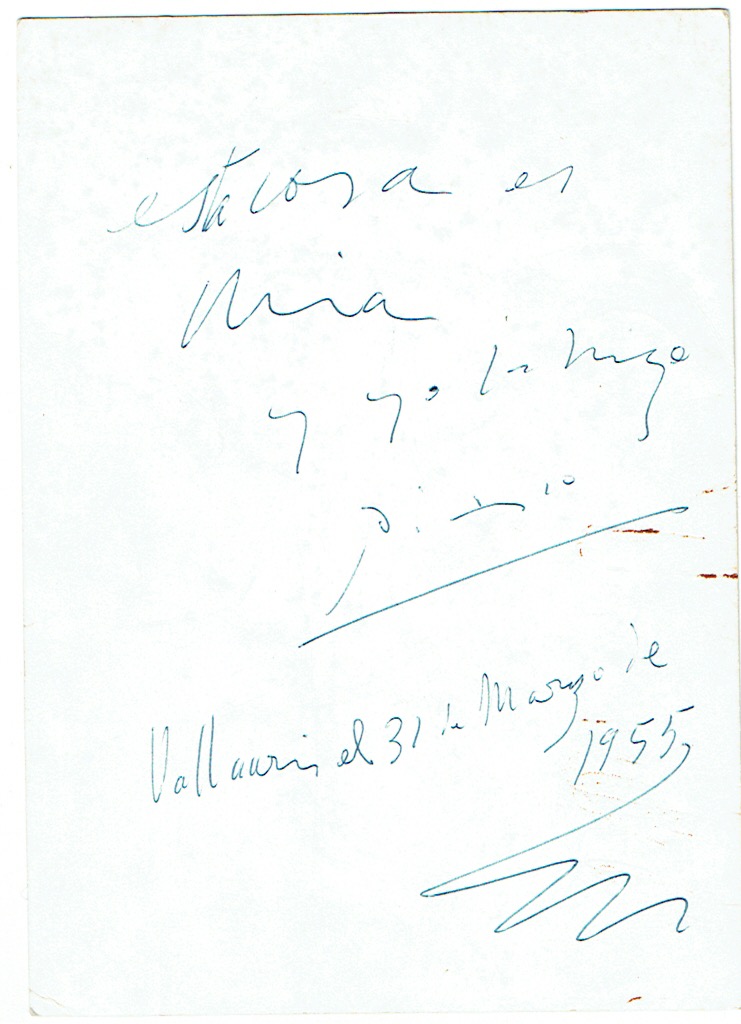 esta cosa es
Mia
y yo la hize
Picasso
Vallauris el 31 de Marzo de
1955